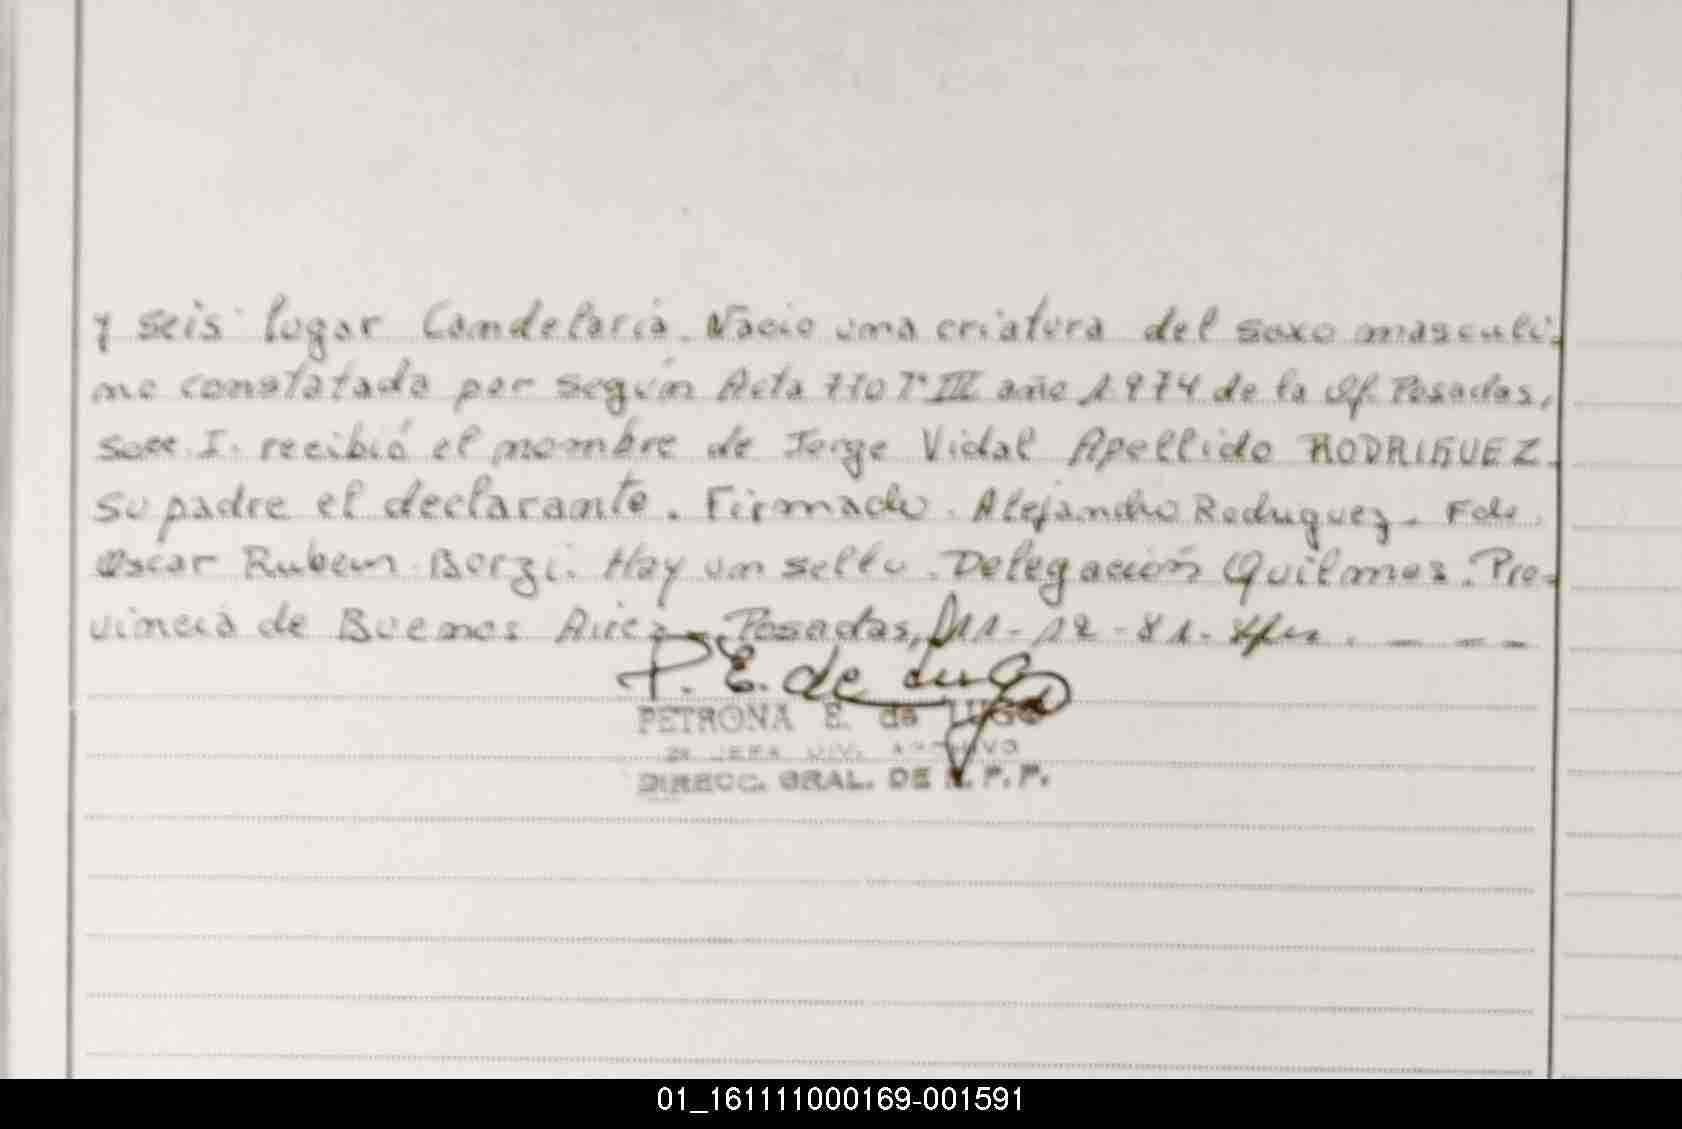 y seis lugar Candelaria. Nacio una criatura del sexo masculi-
no constatada por según Acta 770 Tº III año 1974 de la Of. Posadas,
secc. I. recibió el nombre de Jorge Vidal Apellido RODRIGUEZ.
su padre el declarante. Firmado. Alejandro Rodriguez. Fdo.
Oscar Ruben Borzi. Hay un sello. Delegación Quilmes. Pro-
vincia de Buenos Aires. Posadas, 11-12-81.
P. E. de Lugo
PETRONA E. de LUGO
JEFA DIV. ARCHIVO
DIRECC. GRAL. DE R. P. P.
01_161111000169-001591